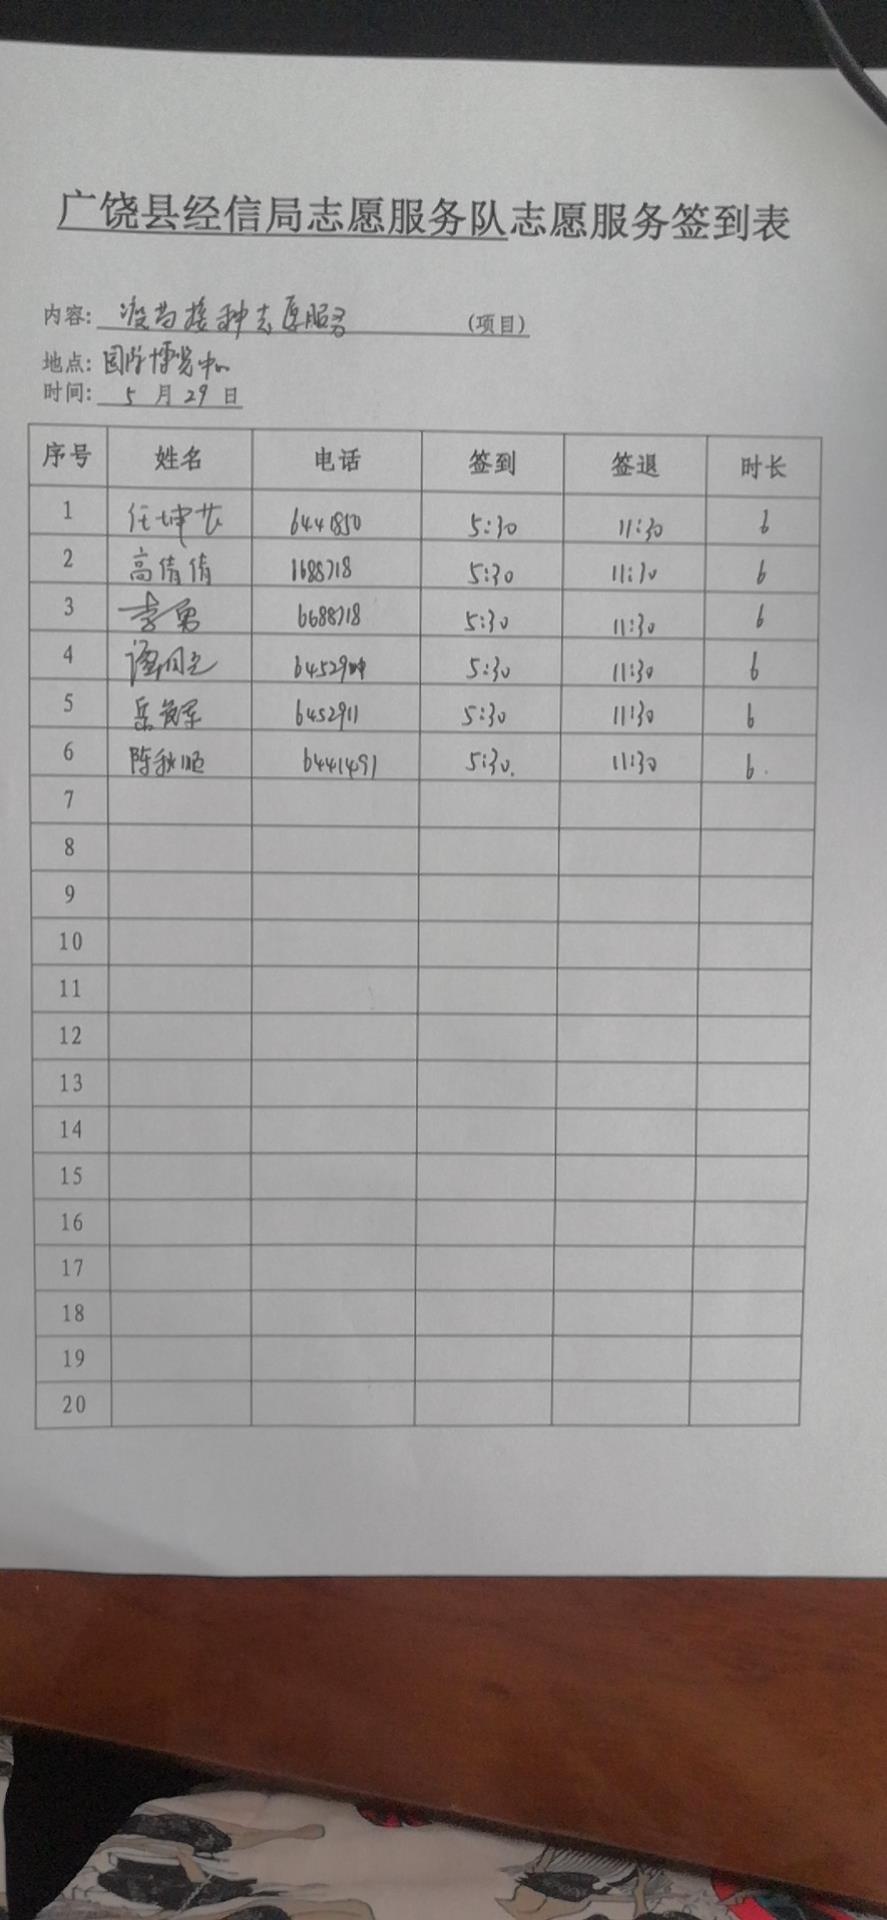 广饶县经信局志愿服务队志愿服务签到表
内容: 疫苗接种志愿服务 (项目)
地点: 国际博览中心
时间: 5 月 29 日
序号 姓名 电话 签到 签退 时长
1 任坤 6441850 5:30 11:30 6
2 高倩倩 1688718 5:30 11:30 6
3 李勇 6688718 5:30 11:30 6
4 64529 5:30 11:30 6
5 岳 6452911 5:30 11:30 6
6 陈秋顺 6441491 5:30. 11:30 6.
7
8
9
10
11
12
13
14
15
16
17
18
19
20